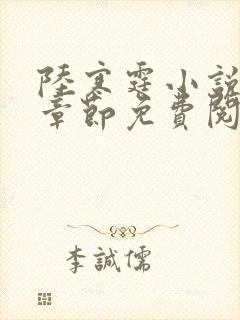 陸寒霆小說
章節免費閱
李誠儒